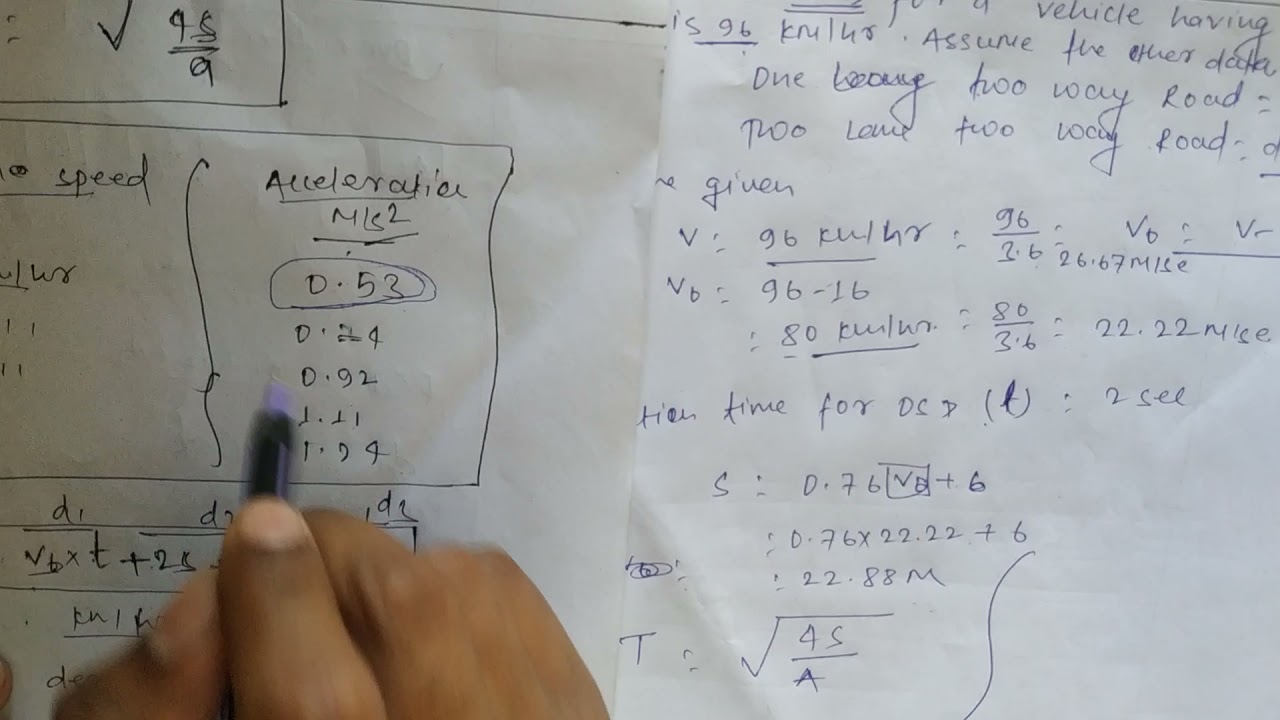 : √ 4S
a
speed
Acceleration
M/s2
0.53
0.24
0.92
1.11
1.24
/hr
11
11
d1
Vb×t + 2s
km/h
is 96 km/hr. Assume the other data
vehicle having
One two way Road =
Two lane two way Road =
given
V = 96 km/hr = 96 = Vb = V-
3.6 26.67 M/se
Vb = 96 - 16
= 80 km/hr. = 80 = 22.22 M/se
3.6
tion time for OSD (t) : 2 sec
S = 0.76 Vb + 6
= 0.76 × 22.22 + 6
= 22.88 M
T = √ 4S
A